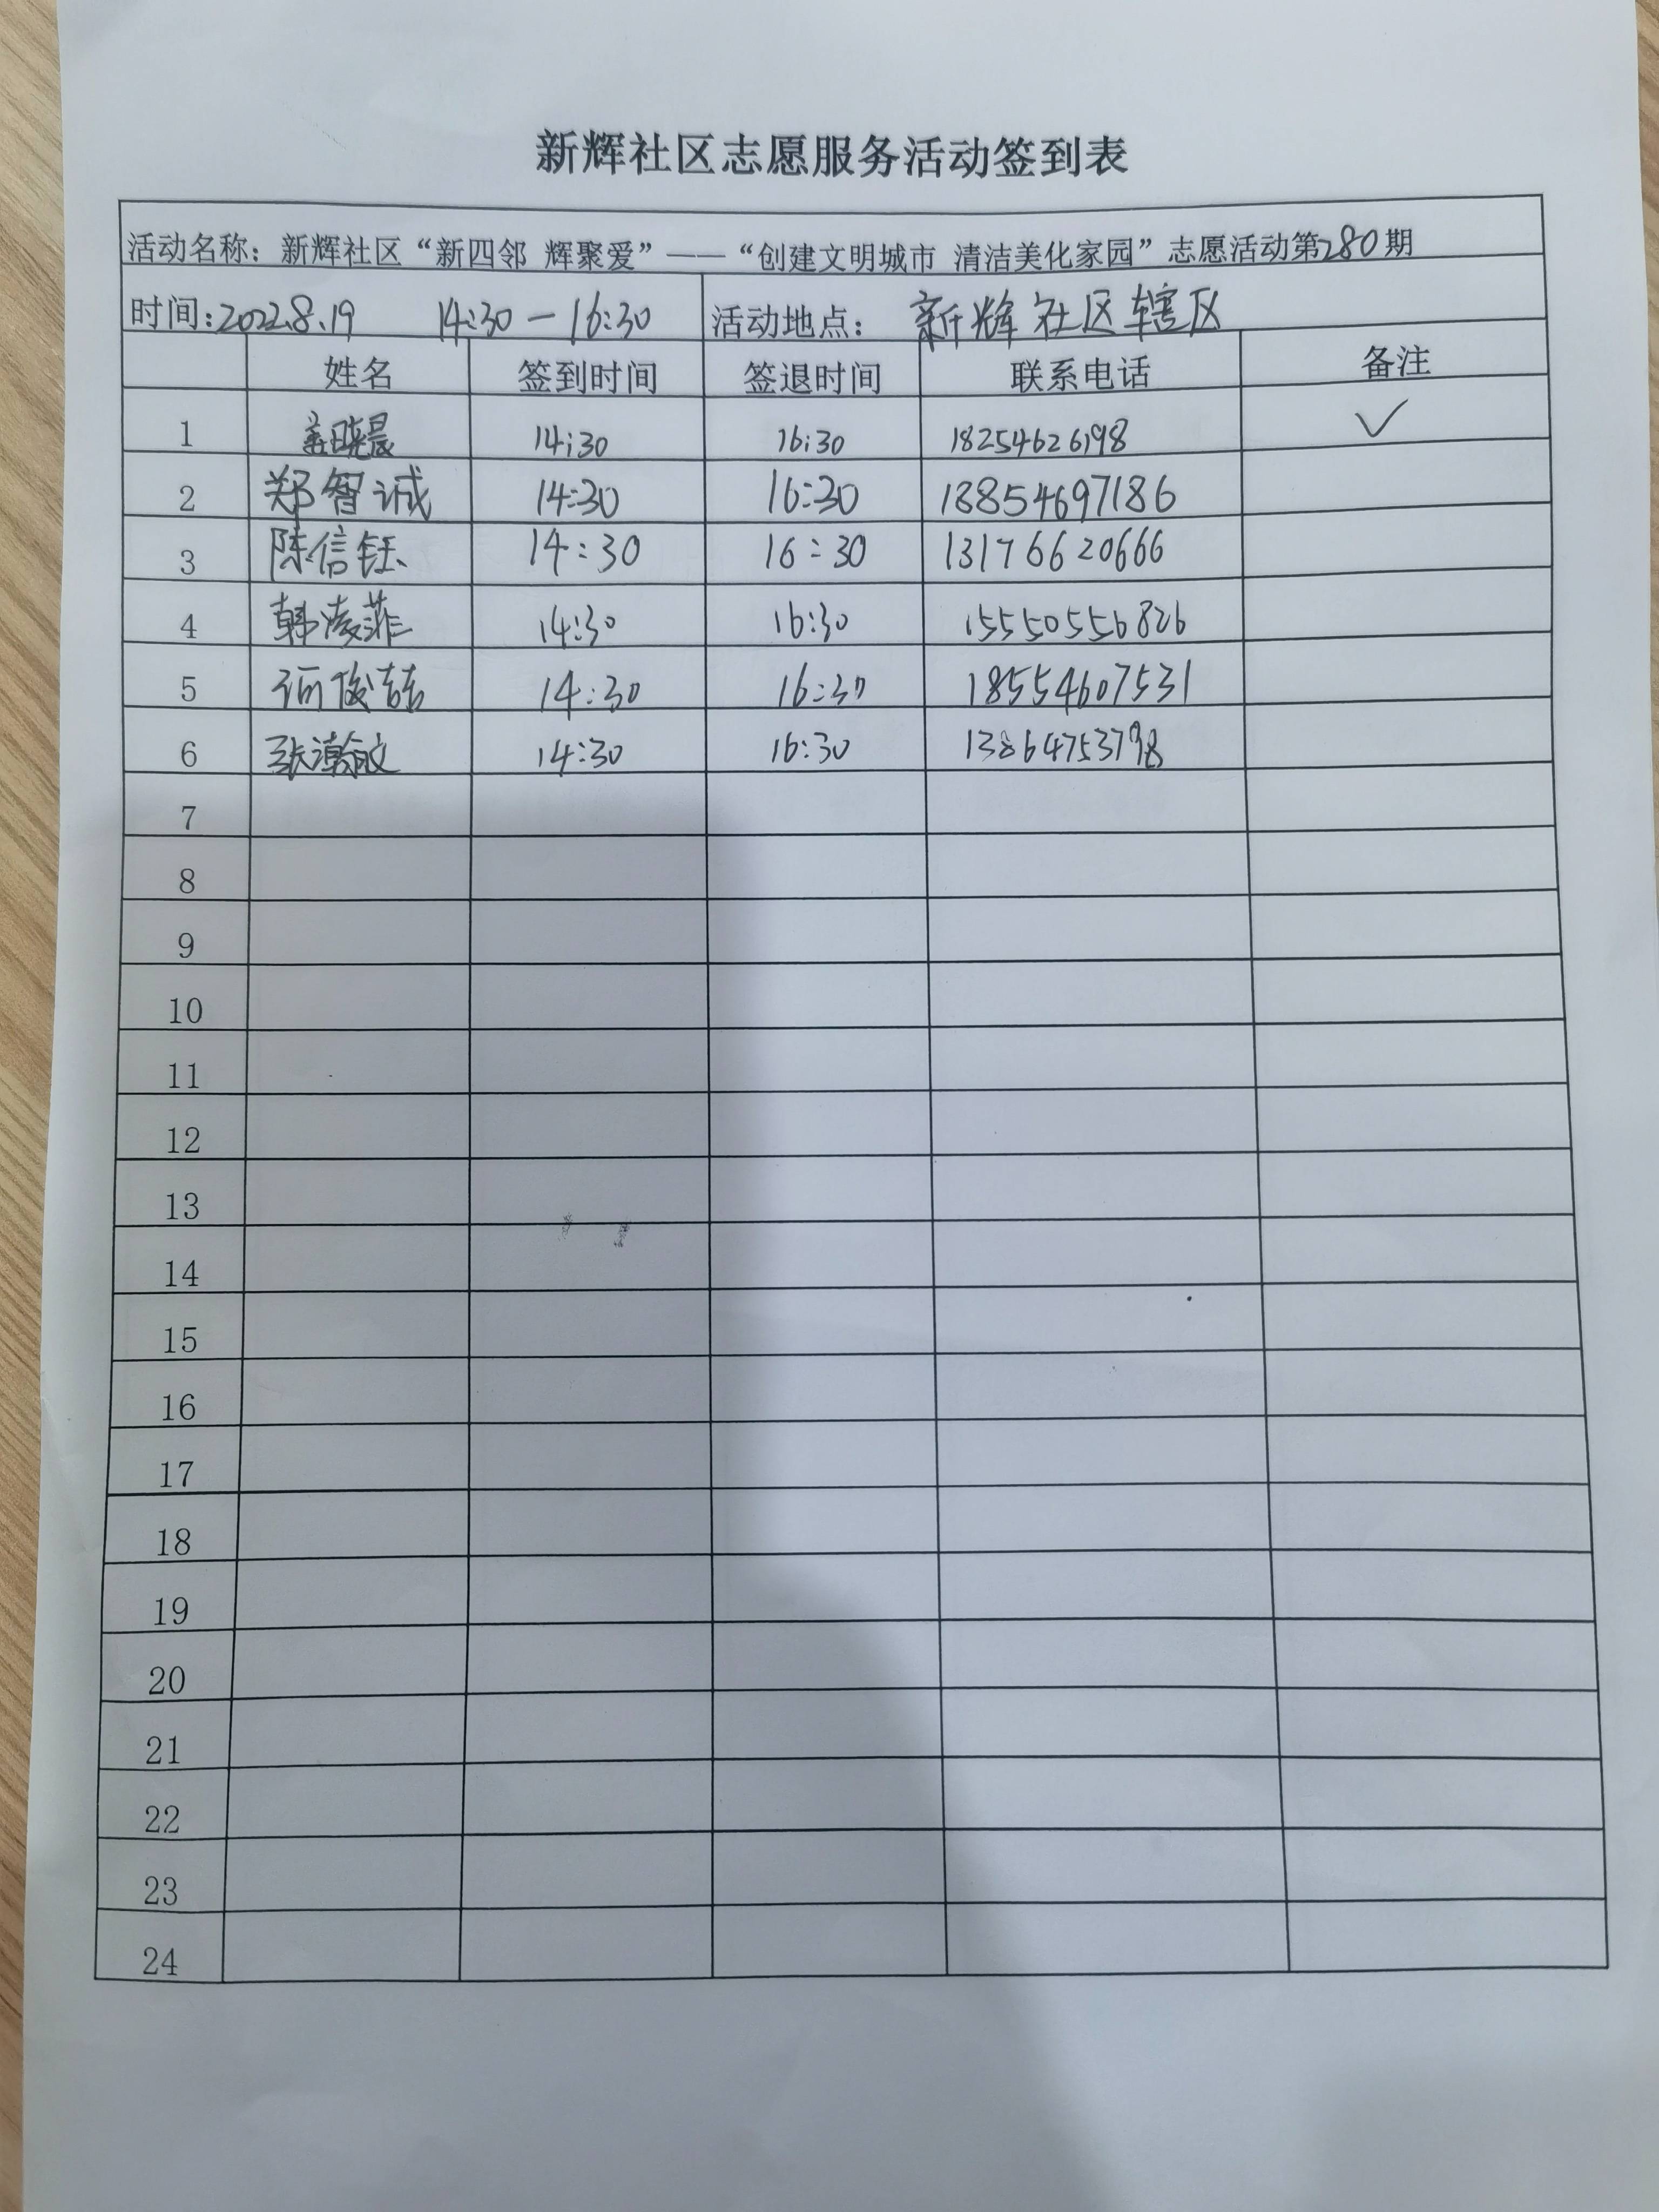 新辉社区志愿服务活动签到表
活动名称：新辉社区“新四邻 辉聚爱”——“创建文明城市 清洁美化家园”志愿活动第280期
时间：2022.8.19 14:30—16:30 活动地点：新辉社区辖区
姓名 签到时间 签退时间 联系电话 备注
1 晓晨 14:30 16:30 18254626198 ✓
2 郑智诚 14:30 16:30 13854697186
3 陈信钰 14:30 16:30 13176620666
4 韩凌菲 14:30 16:30 15550556826
5 俊喆 14:30 16:30 18554607531
6 张瀚文 14:30 16:30 13864753798
7
8
9
10
11
12
13
14
15
16
17
18
19
20
21
22
23
24